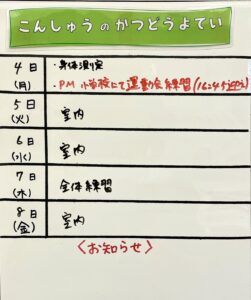 こんしゅうのかつどうよてい
4日(月)
・身体測定
・PM 小学校にて運動会練習(16:24
5日(火) 室内
6日(水) 室内
7日(木) 全体練習
8日(金) 室内
〈お知らせ〉